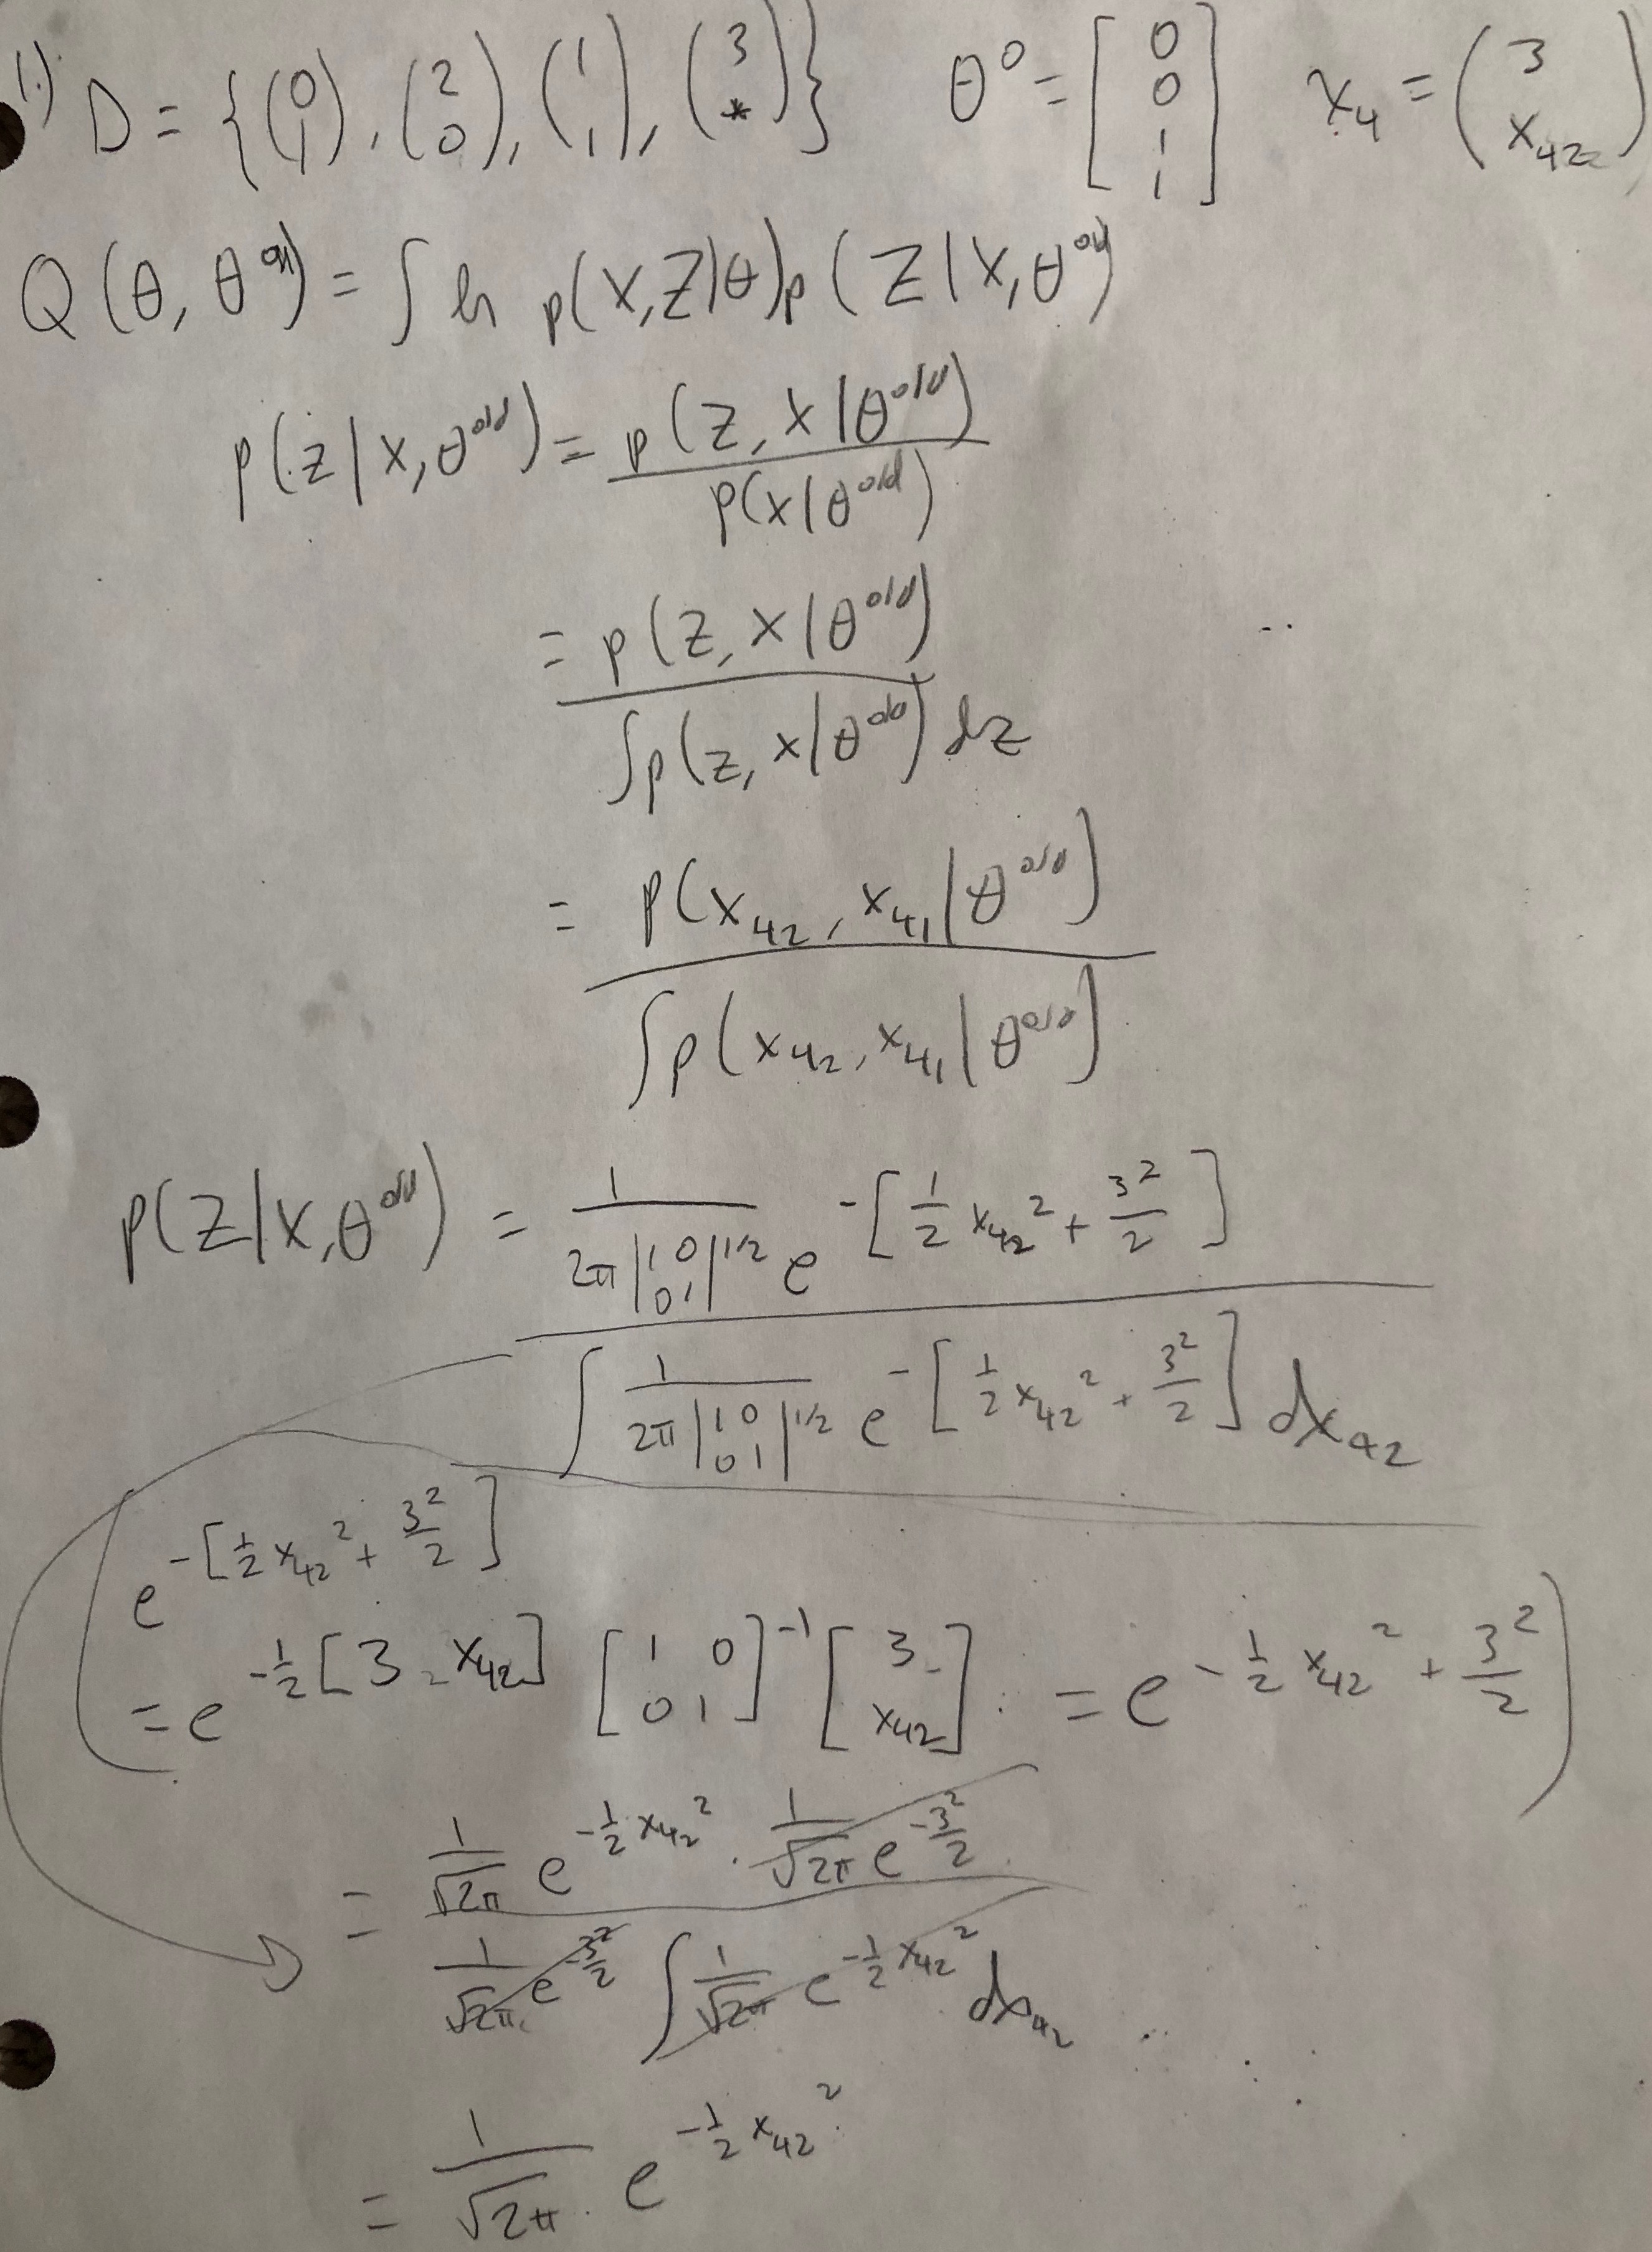 1.) D = {(0 1), (2 0), (1 1), (3 *)} θ⁰ = [0 0 1 1] x₄ = (3 x₄₂)
Q(θ, θ^old) = ∫ ln p(X,Z|θ) p(Z|X,θ^old)
p(z|x,θ^old) = p(z,x|θ^old) / p(x|θ^old)
= p(z,x|θ^old) / ∫p(z,x|θ^old) dz
= p(x₄₂, x₄₁|θ^old) / ∫p(x₄₂, x₄₁|θ^old)
p(Z|X,θ^old) = 1/(2π|1 0 0 1|^1/2) e^-[1/2 x₄₂² + 3²/2] / ∫ 1/(2π|1 0 0 1|^1/2) e^-[1/2 x₄₂² + 3²/2] dx₄₂
(e^-[1/2 x₄₂² + 3²/2]
= e^-1/2 [3 - x₄₂] [1 0 0 1]^-1 [3 - x₄₂] = e^-1/2 x₄₂² + 3²/2)
= 1/√2π e^-1/2 x₄₂² · 1/√2π e^-3²/2 / 1/√2π e^-3²/2 ∫ 1/√2π e^-1/2 x₄₂² dx₄₂
= 1/√2π · e^-1/2 x₄₂²